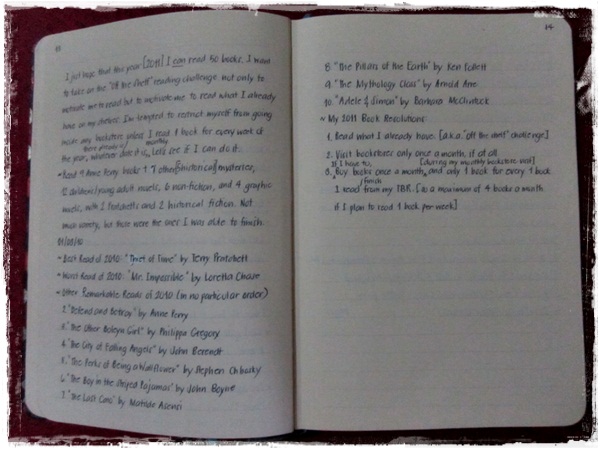 I just hope that this year [2011] I can read 50 books. I want
to take on the "Off the Shelf" reading challenge not only to
motivate me to read but to motivate me to read what I already
have on my shelves. I'm tempted to restrict myself from going
inside any bookstore unless I read 1 book for every week of
monthly
the year, whatever date it is. Let's see if I can do it.
~ Read 9 Anne Perry books, 7 other [historical] mysteries,
12 children/young adult novels, 6 non-fiction, and 4 graphic
novels, with 2 Pratchetts and 2 historical fiction. Not
much variety, but those were the ones I was able to finish.
~ Best Read of 2010: "Thief of Time" by Terry Pratchett
~ Worst Read of 2010: "Mr. Impossible" by Loretta Chase
~ Other Remarkable Reads of 2010 (in no particular order)
"Defend and Betray" by Anne Perry
"The Other Boleyn Girl" by Philippa Gregory
4. "The City of Falling Angels" by John Berendt
5. "The Perks of Being a Wallflower" by Stephen Chbosky
6. "The Boy in the Striped Pajamas" by John Boyne
7. "The Last Cato" by Matilde Asensi
8. "The Pillars of the Earth" by Ken Follett
9. "The Mythology Class" by Arnold Arre
10. "Adele & Simon" by Barbara McClintock
~ My 2011 Book Resolutions:
1. Read what I already have. [a.k.a. "off the shelf" challenge]
2. Visit bookstores only once a month, if at all
If I have to, [during my monthly bookstore visit]
3. Buy books once a month, and only 1 book for every 1 book
finish
I read from my TBR. [So a maximum of 4 books a month
if I plan to read 1 book per week]